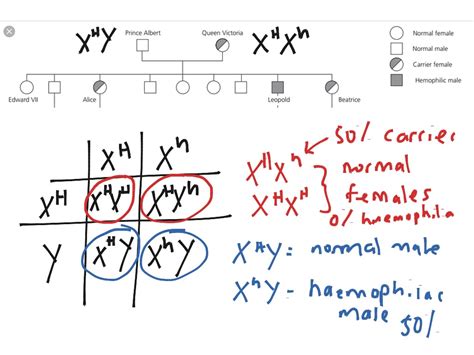 X^H Y Prince Albert Queen Victoria X^H X^h
Normal female
Normal male
Carrier female
Hemophilic male
Edward VII Alice Leopold Beatrice
X^H X^h
X^H X^H X^H X^H X^h
Y X^H Y X^h Y
50% carrier
X^H X^h normal
X^H X^H females
0% haemophilia
X^H Y = normal male
X^h Y - haemophiliac
male 50%